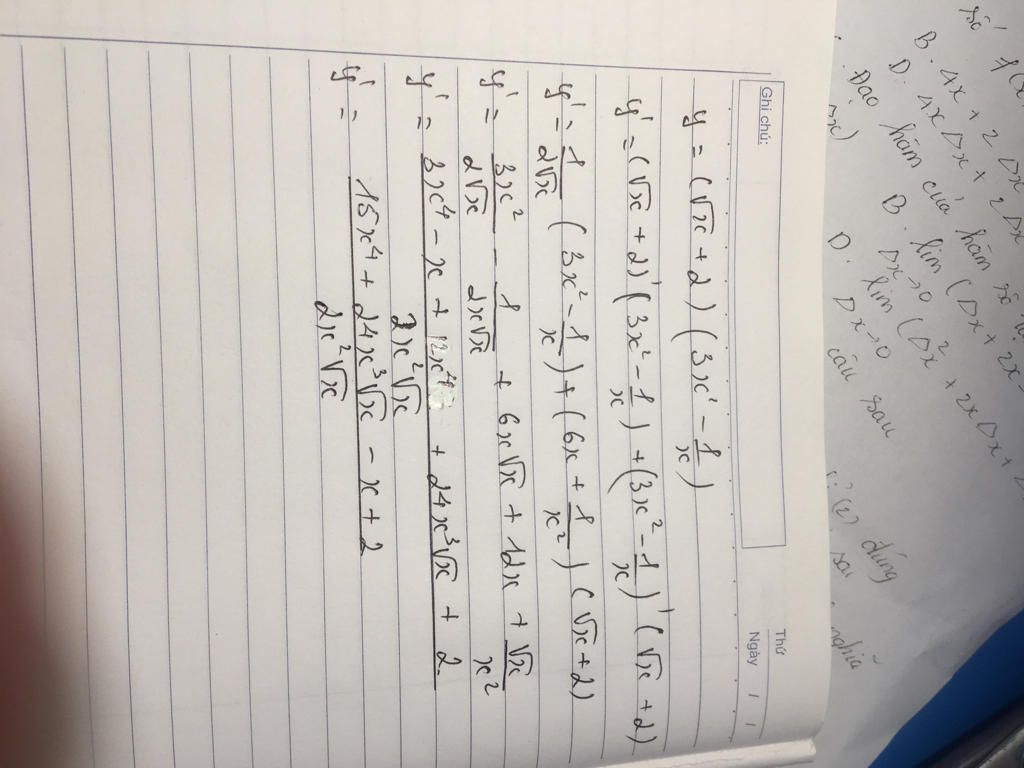 Ghi chú:
Thứ
Ngày / /
y = (√x + 2) (3x' - 1/x)
y' = (√x + 2)' (3x² - 1/x) + (3x² - 1/x)' (√x + 2)
y' = 1/2√x (3x² - 1/x) + (6x + 1/x²) (√x + 2)
y' = 3x²/2√x - 1/2x√x + 6x√x + 12x + √x/x²
y' = 3x⁴ - x + 12x⁴ + 24x³√x + 2 / 2x²√x
y' = 15x⁴ + 24x³√x - x + 2 / 2x²√x
số
B. 4x + 2Δx
D. 4xΔx + 2Δx
Đạo hàm của hàm số
B. lim (Δx + 2x -
Δx→0
D. lim (Δx² + 2xΔx +
Δx→0
câu sau
đúng
sai
nghĩa